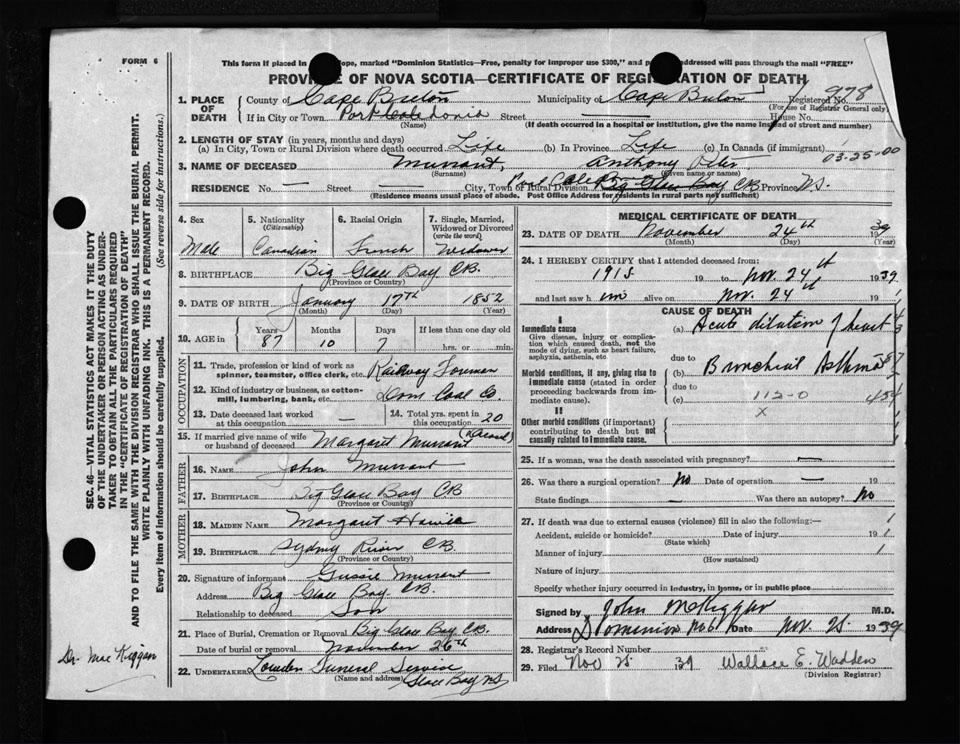 FORM 6
This form if placed in ope, marked "Dominion Statistics—Free, penalty for improper use $300," and p addressed will pass through the mail "FREE"
PROVINCE OF NOVA SCOTIA—CERTIFICATE OF REGISTRATION OF DEATH
978
1. PLACE OF DEATH County of Cape Breton Municipality of Cape Breton Registered No.
(For use of Registrar General only)
If in City or Town Port Caledonia Street House No.
(Name) (If death occurred in a hospital or institution, give the name instead of street and number)
2. LENGTH OF STAY (in years, months and days)
(a) In City, Town or Rural Division where death occurred Life (b) In Province Life (c) In Canada (if immigrant)
03-25-00
3. NAME OF DECEASED Murrant, Anthony Peter
(Surname) (Given name or names)
RESIDENCE No. — Street — City, Town or Rural Division Port Cale Big Glace Bay CB Province N.S.
(Residence means usual place of abode. Post Office Address for residents in rural parts not sufficient)
4. Sex
Male
5. Nationality
(Citizenship)
Canadian
6. Racial Origin
French
7. Single, Married, Widowed or Divorced
(write the word)
Widower
8. BIRTHPLACE Big Glace Bay CB.
(Province or Country)
9. DATE OF BIRTH January 17th 1852
(Month) (Day) (Year)
10. AGE in Years Months Days If less than one day old
87 10 7 hrs. or min.
OCCUPATION
11. Trade, profession or kind of work as spinner, teamster, office clerk, etc. Railway Foreman
12. Kind of industry or business, as cotton-mill, lumbering, bank, etc. Dom Coal Co
13. Date deceased last worked at this occupation —
14. Total yrs. spent in this occupation 20
15. If married give name of wife or husband of deceased Margaret Murrant
FATHER
16. NAME John Murrant
17. BIRTHPLACE Big Glace Bay CB
MOTHER
18. MAIDEN NAME Margaret
19. BIRTHPLACE Sydney River CB.
(Province or Country)
20. Signature of informant Gussie Murrant
Address Big Glace Bay CB.
Relationship to deceased Son
21. Place of Burial, Cremation or Removal Big Glace Bay C.B.
Date of burial or removal November 26th
22. UNDERTAKER Lowden Funeral Service
(Name and address) Glace Bay N.S.
MEDICAL CERTIFICATE OF DEATH
23. DATE OF DEATH November 24th 1939
(Month) (Day) (Year)
24. I HEREBY CERTIFY that I attended deceased from:
1915 19 to Nov. 24th 1939
and last saw him alive on Nov. 24th 19
CAUSE OF DEATH
I
Immediate cause
Give disease, injury or complication which caused death, not the mode of dying, such as heart failure, asphyxia, asthenia, etc.
(a) Acute dilation of heart
due to
Morbid conditions, if any, giving rise to immediate cause (stated in order proceeding backwards from immediate cause).
(b) Bronchial Asthma
due to
(c) 112-0
II
x
Other morbid conditions (if important) contributing to death but not causally related to immediate cause.
25. If a woman, was the death associated with pregnancy? —
26. Was there a surgical operation? No Date of operation — 19
State findings — Was there an autopsy? No
27. If death was due to external causes (violence) fill in also the following:—
Accident, suicide or homicide? Date of injury 19
(State which)
Manner of injury
(How sustained)
Nature of injury
Specify whether injury occurred in industry, in home, or in public place
Signed by John M. D.
Address Dominion No 6 Date Nov. 25. 1939
28. Registrar's Record Number
29. Filed Nov 25. 1939 Wallace E. Wadden
(Division Registrar)
SEC. 46—VITAL STATISTICS ACT MAKES IT THE DUTY
OF THE UNDERTAKER OR PERSON ACTING AS UNDER-
TAKER TO OBTAIN ALL THE PARTICULARS REQUIRED
IN THE "CERTIFICATE OF REGISTRATION OF DEATH"
AND TO FILE THE SAME WITH THE DIVISION REGISTRAR WHO SHALL ISSUE THE BURIAL PERMIT.
WRITE PLAINLY WITH UNFADING INK. THIS IS A PERMANENT RECORD.
Every item of information should be carefully supplied. (See reverse side for instructions.)
Dr. Mac Kiggan